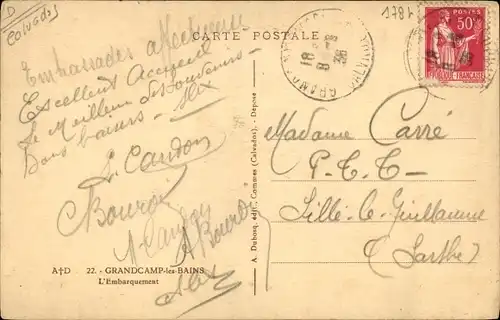 D
Calvados
1781
CARTE POSTALE
POSTES
50c
REPUBLIQUE FRANÇAISE
18
8
38
Embrassades affectueuses
Excellent Accueil
Le Meilleur des souvenirs
Bons baisers - Alex
Candon
Bourg
Candon
ABourg
Alex
Madame Carré
P.T.T.
Sillé-le-Guillaume
(Sarthe)
A†D 22. - GRANDCAMP-les-BAINS
L'Embarquement
A. Dubosq, édit., Commes (Calvados). - Déposé